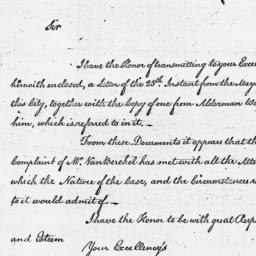 Sir
I have the Honor of transmitting to your Exce
herewith enclosed, a Letter of the 25th Instant from the May
this City, together with the Copy of one from Alderman W
him, which is referred to in it. —
From these Documents it appears that th
Complaint of Mr. Van Berchel has met with all the Atte
which the Nature of the Case, and the Circumstances r
to it would admit of. —
I have the Honor to be with great Resp
and Esteem
Your Excellency's